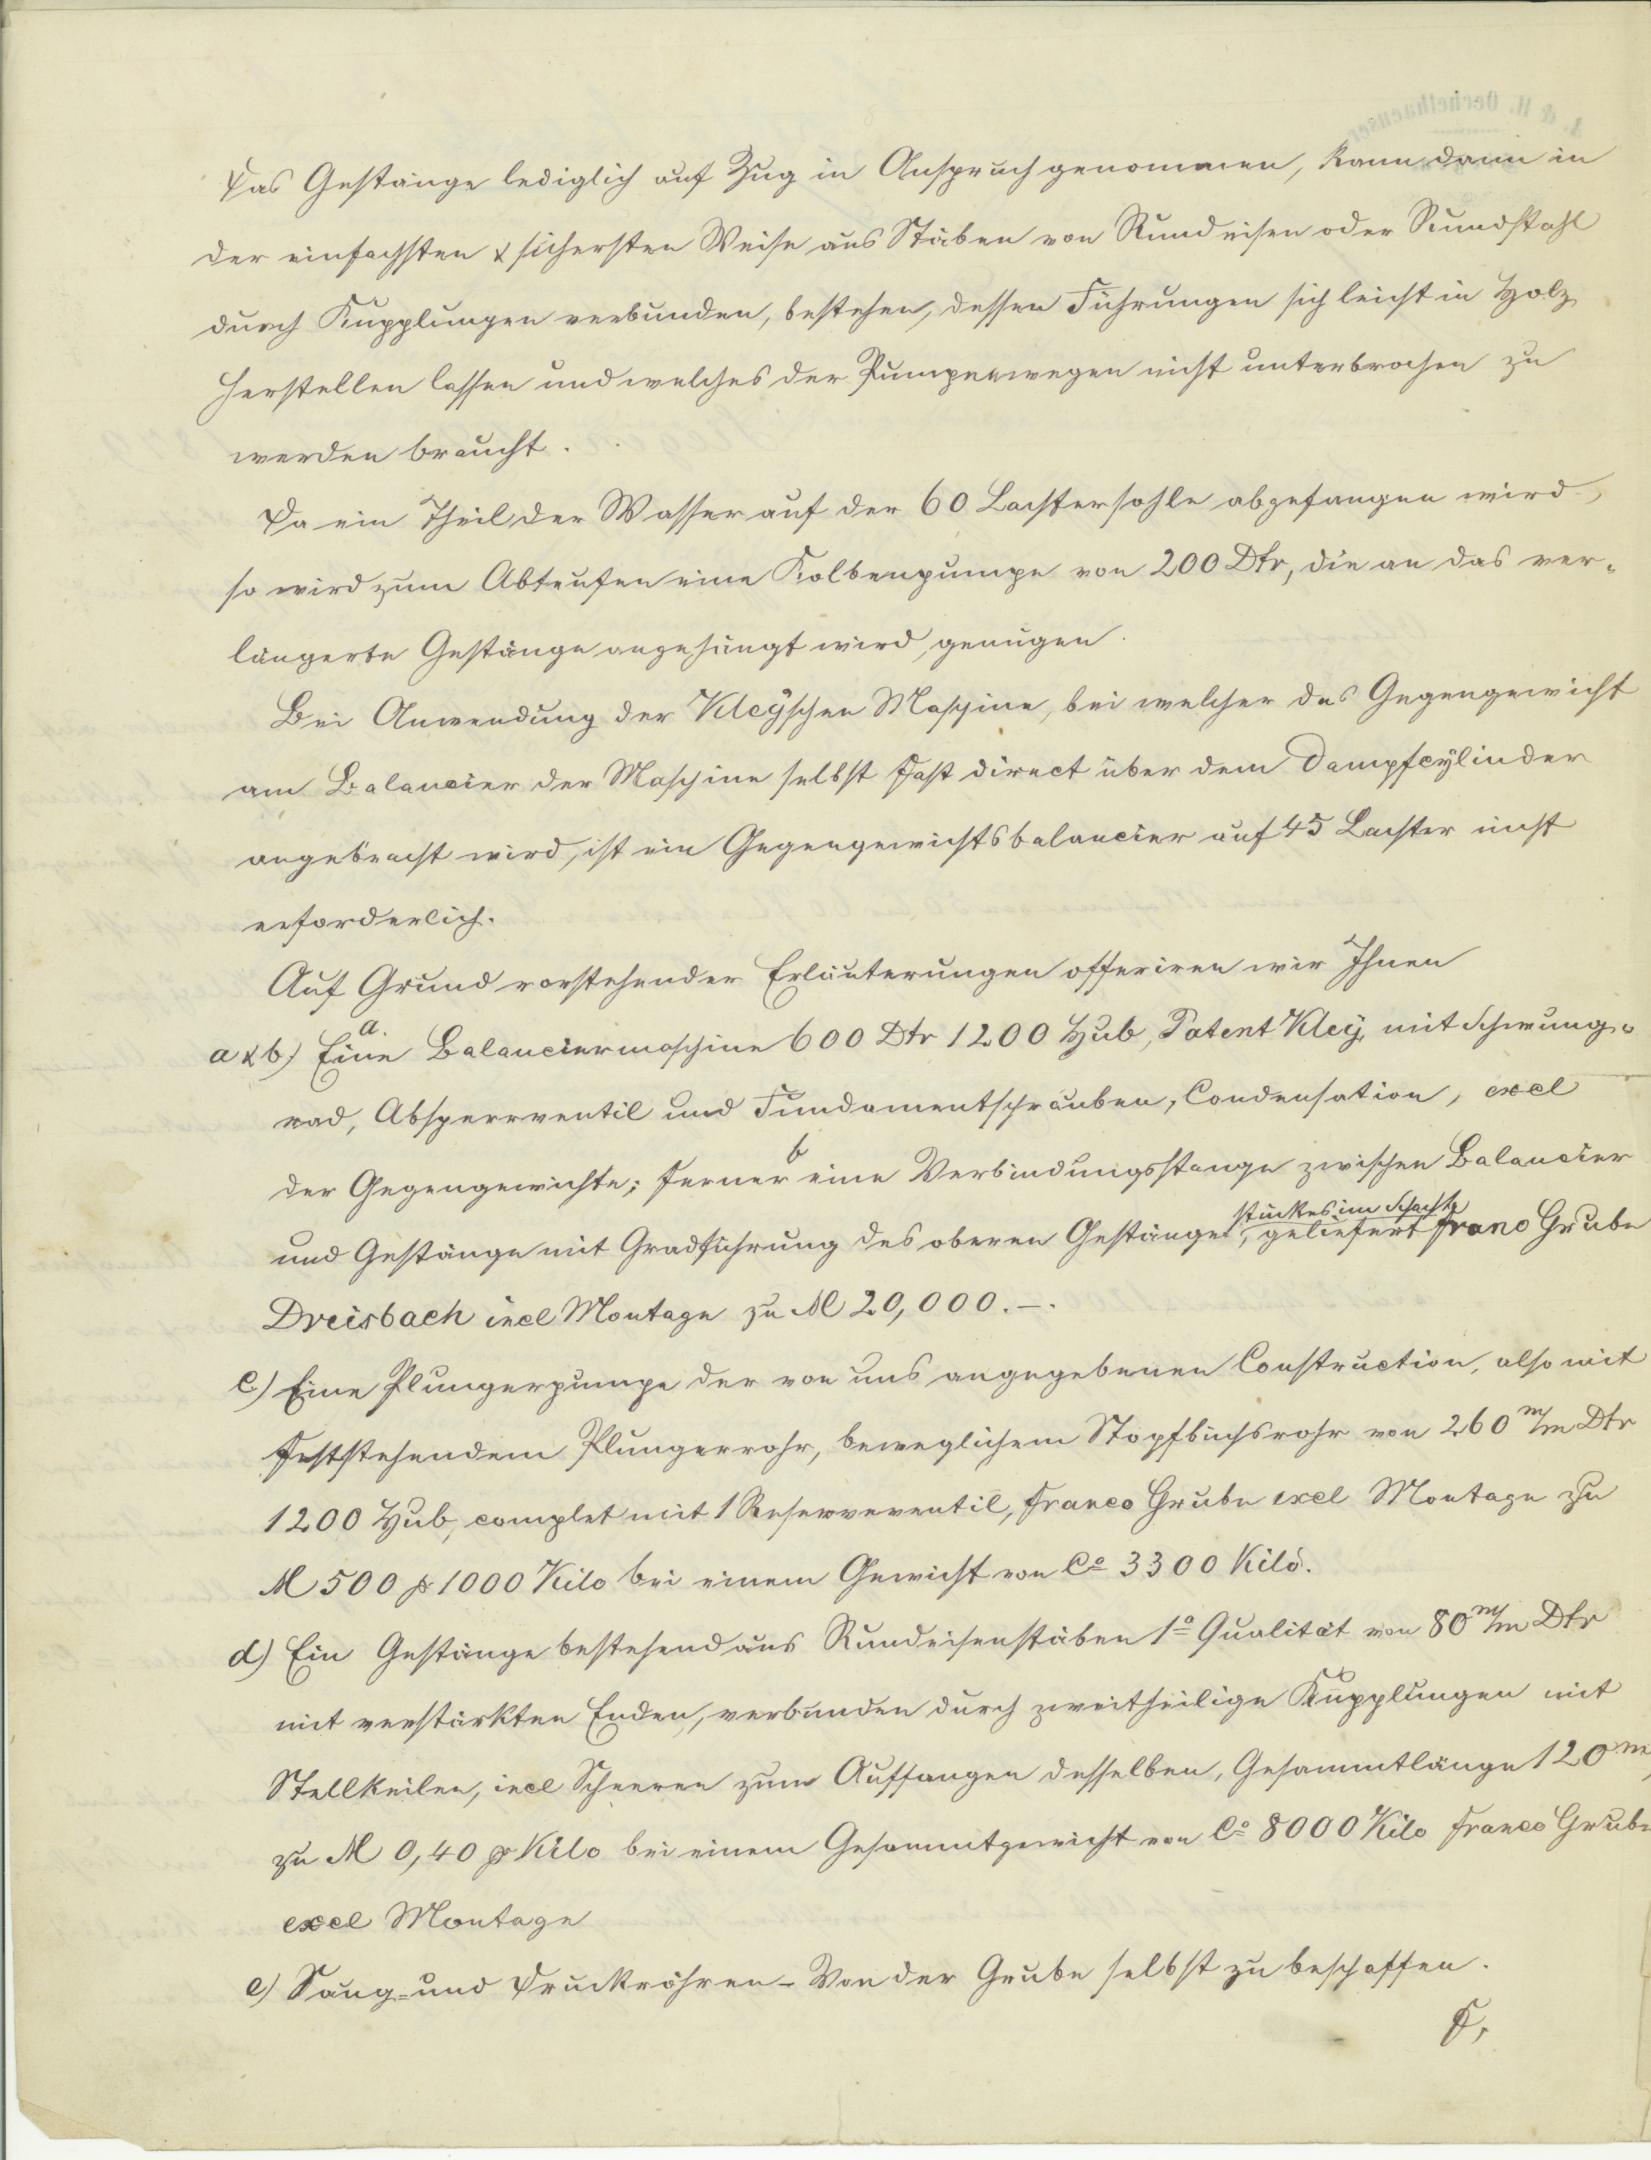 Das Gestänge lediglich auf Zug in Anspruch genommen, kann dann in
der einfachsten & sichersten Weise aus Stäben von Rundeisen oder Rundstahl
durch Kupplungen verbunden, bestehen, dessen Führungen sich leicht in Holz
herstellen lassen und welches der Pumpen wegen nicht unterbrochen zu
werden braucht.
Da ein Theil der Wasser auf der 60 Lachtersohle abgefangen wird,
so wird zum Abteufen eine Kolbenpumpe von 200 Dtr, die an das ver-
längerte Gestänge angehängt wird, genügen.
Bei Anwendung der Kleyschen Maschine, bei welcher das Gegengewicht
am Balancier der Maschine selbst fast direct über dem Dampfcylinder
angebracht wird, ist ein Gegengewichtsbalancier auf 45 Lachter nicht
erforderlich.
Auf Grund vorstehender Erläuterungen offeriren wir Ihnen
a.
a & b) Eine Balanciermaschine 600 Dtr 1200 Hub, Patent Kley, mit Schwung-
rad, Absperrventil und Fundamentschrauben, Condensation, excl
b
der Gegengewichte; ferner eine Verbindungsstange zwischen Balancier
stückes im Schacht
und Gestänge mit Gradführung des oberen Gestänge, geliefert franco Grube
Dreisbach incl Montage zu M 20,000.–.
c) Eine Plungerpumpe der von uns angegebenen Construction, also mit
feststehendem Plungerrohr, beweglichem Stopfbüchsrohr von 260 m/m Dtr
1200 Hub, complet mit 1 Reserveventil, franco Grube excl Montage zu
M 500 p 1000 Kilo bei einem Gewicht von Ca 3300 Kilo.
d) Ein Gestänge bestehend aus Rundeisenstäben 1a Qualität von 80 m/m Dtr
mit verstärkten Enden, verbunden durch zweitheilige Kupplungen mit
Stellkeilen, incl Scheeren zum Auffangen desselben, Gesammtlänge 120 m,
zu M 0,40 p Kilo bei einem Gesammtgewicht von Ca 8000 Kilo franco Grube
excl Montage
e) Saug- und Druckröhren – Von der Grube selbst zu beschaffen.
f,